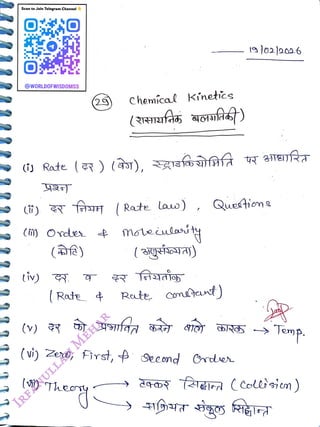 Scan to Join Telegram Channel
@WORLDOFWISDOMS3
19/02/2026
(29) Chemical Kinetics
(रासायनिक बलगतिकी)
(i) Rate (दर) (वेग), स्ट्राइकियोमिति पर आधारित
प्रश्न
(ii) दर नियम (Rate Law), Questions
(iii) Order & Molecularity
(कोटि) (अणुसंख्यता)
(iv) दर व दर नियतांक
(Rate & Rate constant)
(v) दर को प्रभावित करने वाले कारक → Temp.
(vi) Zero, First, & Second Order
(vii) Theory → टक्कर सिद्धान्त (Collision)
→ सक्रियत संकुल सिद्धान्त
IRFANULLAH MEHAR